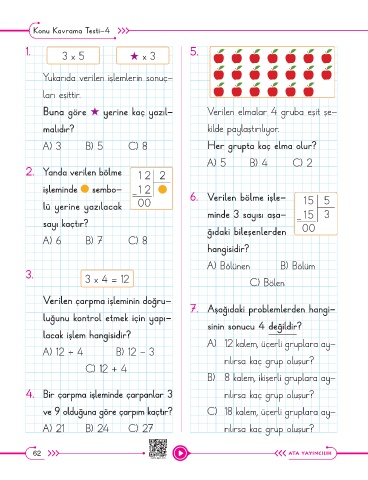 Konu Kavrama Testi-4
1.
3 x 5
★ x 3
Yukarıda verilen işlemlerin sonuç-
ları eşittir.
Buna göre ★ yerine kaç yazıl-
malıdır?
A) 3 B) 5 C) 8
2. Yanda verilen bölme
işleminde ● sembo-
lü yerine yazılacak
sayı kaçtır?
12 2
12 ●
00
A) 6 B) 7 C) 8
3.
3 x 4 = 12
Verilen çarpma işleminin doğru-
luğunu kontrol etmek için yapı-
lacak işlem hangisidir?
A) 12 ÷ 4 B) 12 - 3
C) 12 + 4
4. Bir çarpma işleminde çarpanlar 3
ve 9 olduğuna göre çarpım kaçtır?
A) 21 B) 24 C) 27
5.
Verilen elmalar 4 gruba eşit şe-
kilde paylaştırılıyor.
Her grupta kaç elma olur?
A) 5 B) 4 C) 2
6. Verilen bölme işle-
minde 3 sayısı aşa-
ğıdaki bileşenlerden
hangisidir?
15 5
15 3
00
A) Bölünen B) Bölüm
C) Bölen
7. Aşağıdaki problemlerden hangi-
sinin sonucu 4 değildir?
A) 12 kalem, üçerli gruplara ay-
rılırsa kaç grup oluşur?
B) 8 kalem, ikişerli gruplara ay-
rılırsa kaç grup oluşur?
C) 18 kalem, üçerli gruplara ay-
rılırsa kaç grup oluşur?
62
ATA YAYINCILIK